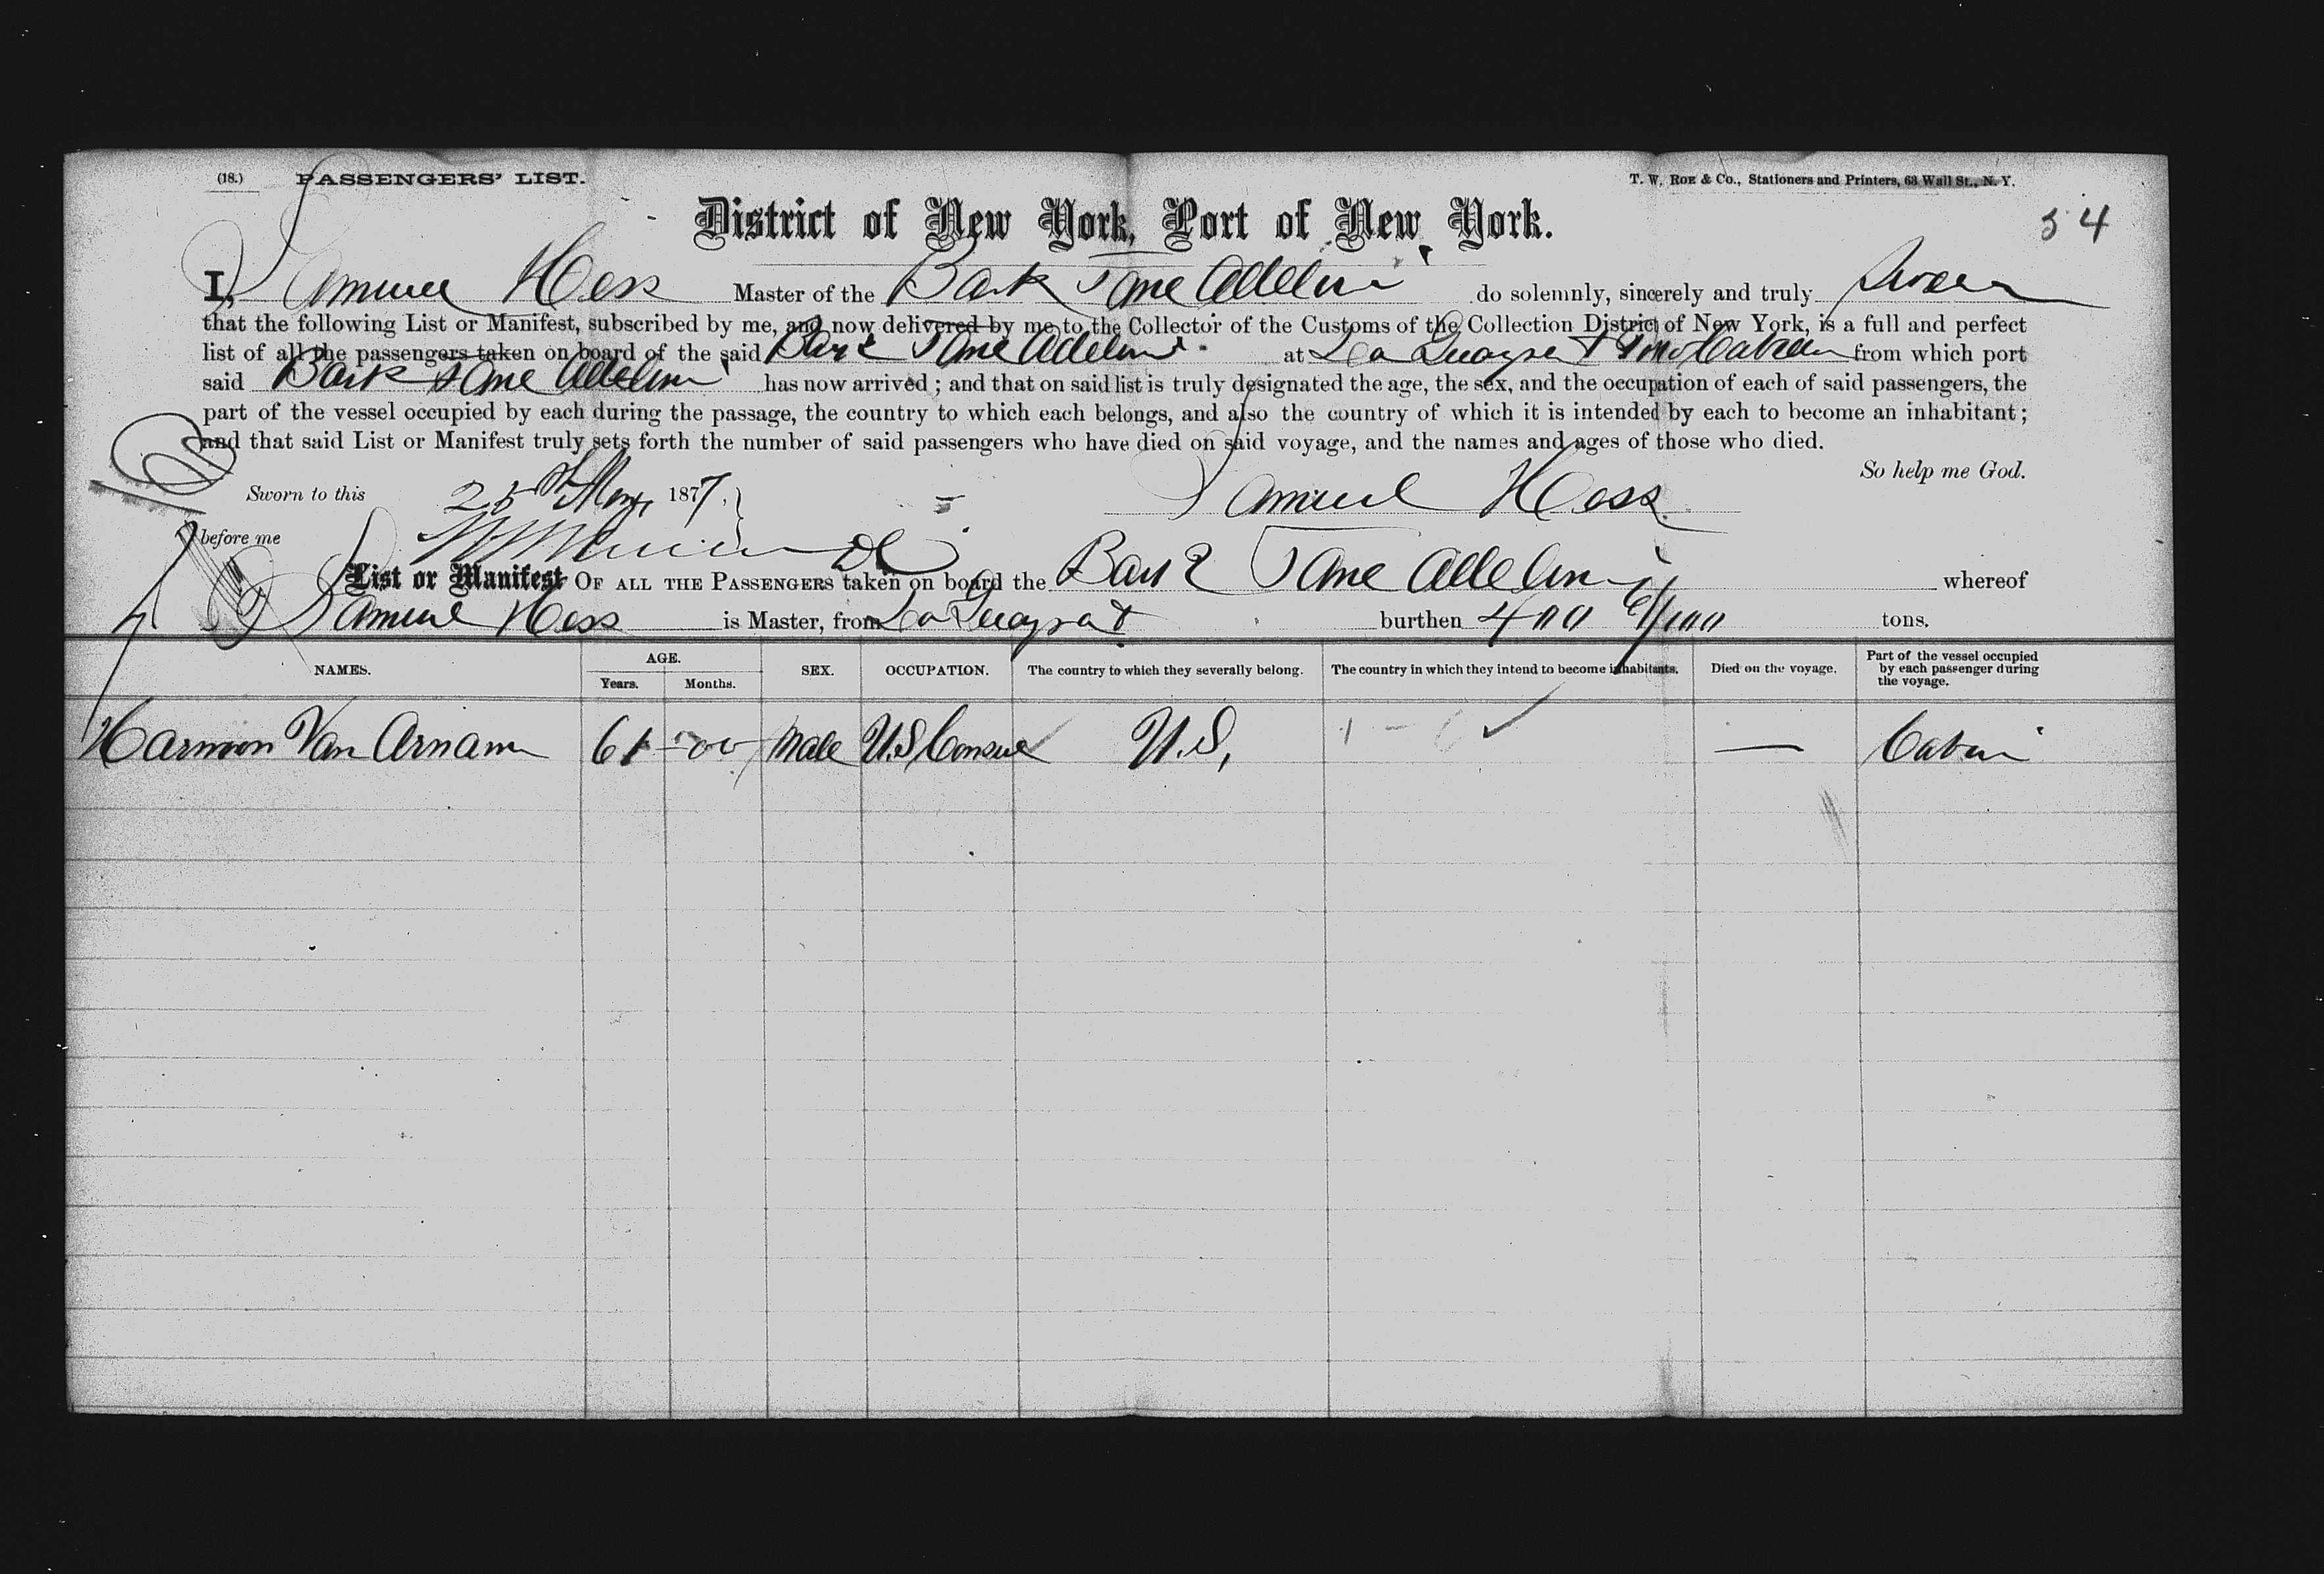 (18.) PASSENGERS' LIST. T. W. Roe & Co., Stationers and Printers, 63 Wall St., N. Y.
54
District of New York, Port of New York.
I, Samuel Hess Master of the Bark Jane Adeline do solemnly, sincerely and truly Swear
that the following List or Manifest, subscribed by me, and now delivered by me to the Collector of the Customs of the Collection District of New York, is a full and perfect
list of all the passengers taken on board of the said Bark Jane Adeline at La Guayra & from which port
said Bark Jane Adeline has now arrived; and that on said list is truly designated the age, the sex, and the occupation of each of said passengers, the
part of the vessel occupied by each during the passage, the country to which each belongs, and also the country of which it is intended by each to become an inhabitant;
and that said List or Manifest truly sets forth the number of said passengers who have died on said voyage, and the names and ages of those who died.
So help me God.
Sworn to this 25th May, 1877, Samuel Hess
before me
List or Manifest OF ALL THE PASSENGERS taken on board the Bark Jane Adeline whereof
Samuel Hess is Master, from La Guayra & burthen 400 /100 tons.
NAMES. AGE. Years. Months. SEX. OCCUPATION. The country to which they severally belong. The country in which they intend to become inhabitants. Died on the voyage. Part of the vessel occupied by each passenger during the voyage.
Harmon Van Arnam 61 - 00 Male U.S Consul U.S, — Cabin